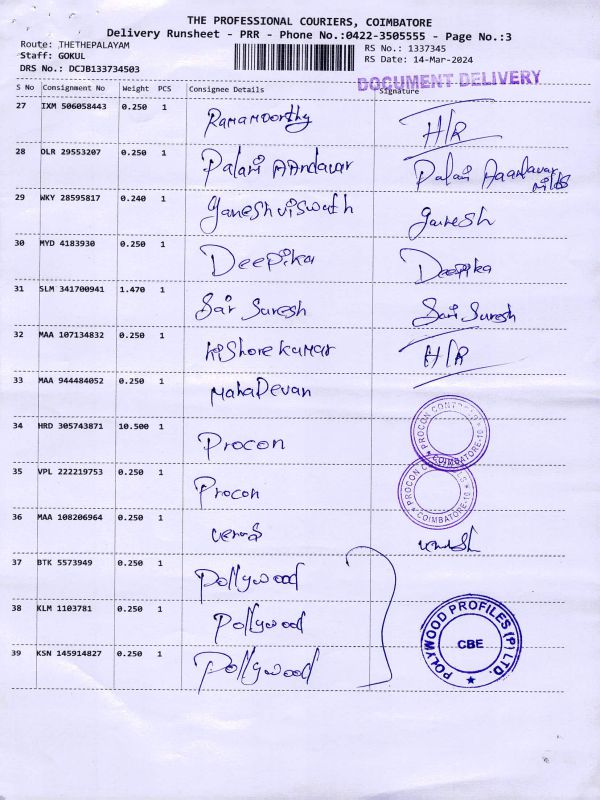 THE PROFESSIONAL COURIERS, COIMBATORE
Delivery Runsheet - PRR - Phone No.:0422-3505555 - Page No.:3
Route: THETHEPALAYAM
RS No.: 1337345
Staff: GOKUL
RS Date: 14-Mar-2024
DRS No.: DCJB133734503
DOCUMENT DELIVERY
S No Consignment No Weight PCS Consignee Details Signature
27 IXM 506058443 0.250 1 Ramamoorthy H/R
28 DLR 29553207 0.250 1 Palani AAndavar Palani Aaandavar mills
29 WKY 28595817 0.240 1 Ganesh viswath Ganesh
30 MYD 4183930 0.250 1 Deepika Deepika
31 SLM 341700941 1.470 1 Sai Suresh Sai Suresh
32 MAA 107134832 0.250 1 Kishore kumar H/R
33 MAA 944484052 0.250 1 MahaDevan
34 HRD 305743871 10.500 1 Procon PROCON COIMBATORE-10
35 VPL 222219753 0.250 1 Procon PROCON COIMBATORE-10
36 MAA 108206964 0.250 1
37 BTK 5573949 0.250 1 Pollywood
38 KLM 1103781 0.250 1 Pollywood POLYWOOD PROFILES (P) LTD. CBE
39 KSN 145914827 0.250 1 Pollywood